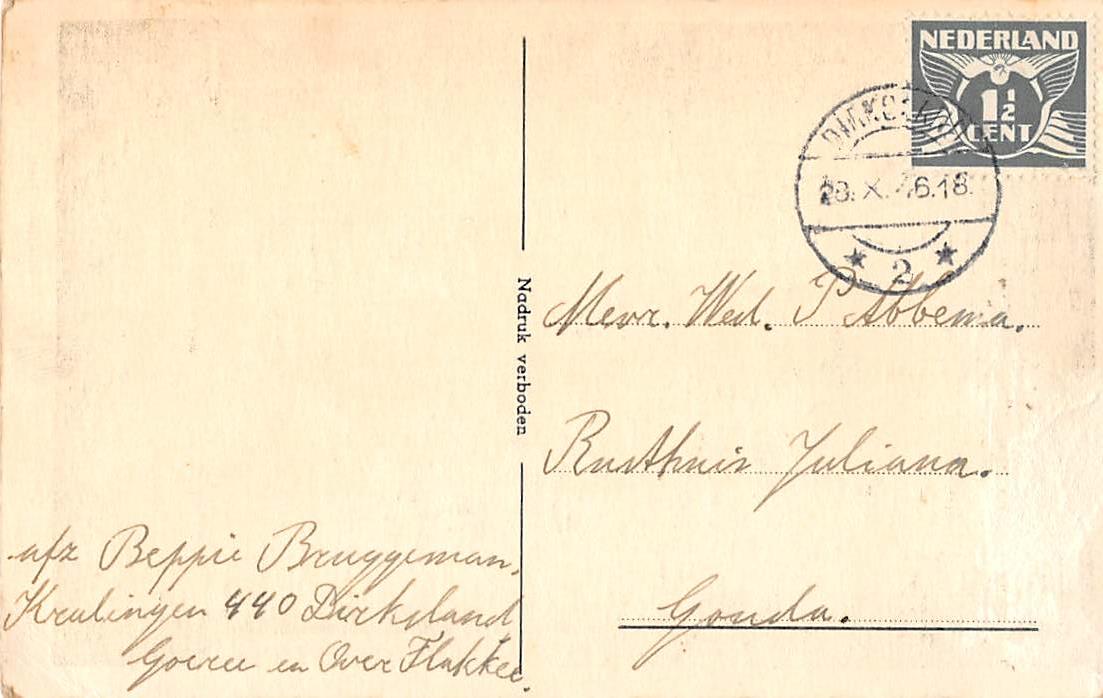 NEDERLAND
1½
CENT
28. X. 46.18.
2
Nadruk verboden
Mevr. Wed. P Abbema.
Rusthuis Juliana.
Gouda.
afz Beppie Bruggeman.
Kralingen 440 Dirksland
Goeree en Over Flakkee.